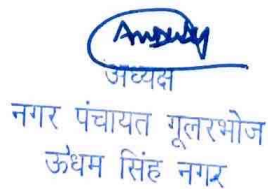 अध्यक्ष
नगर पंचायत गूलरभोज
ऊधम सिंह नगर